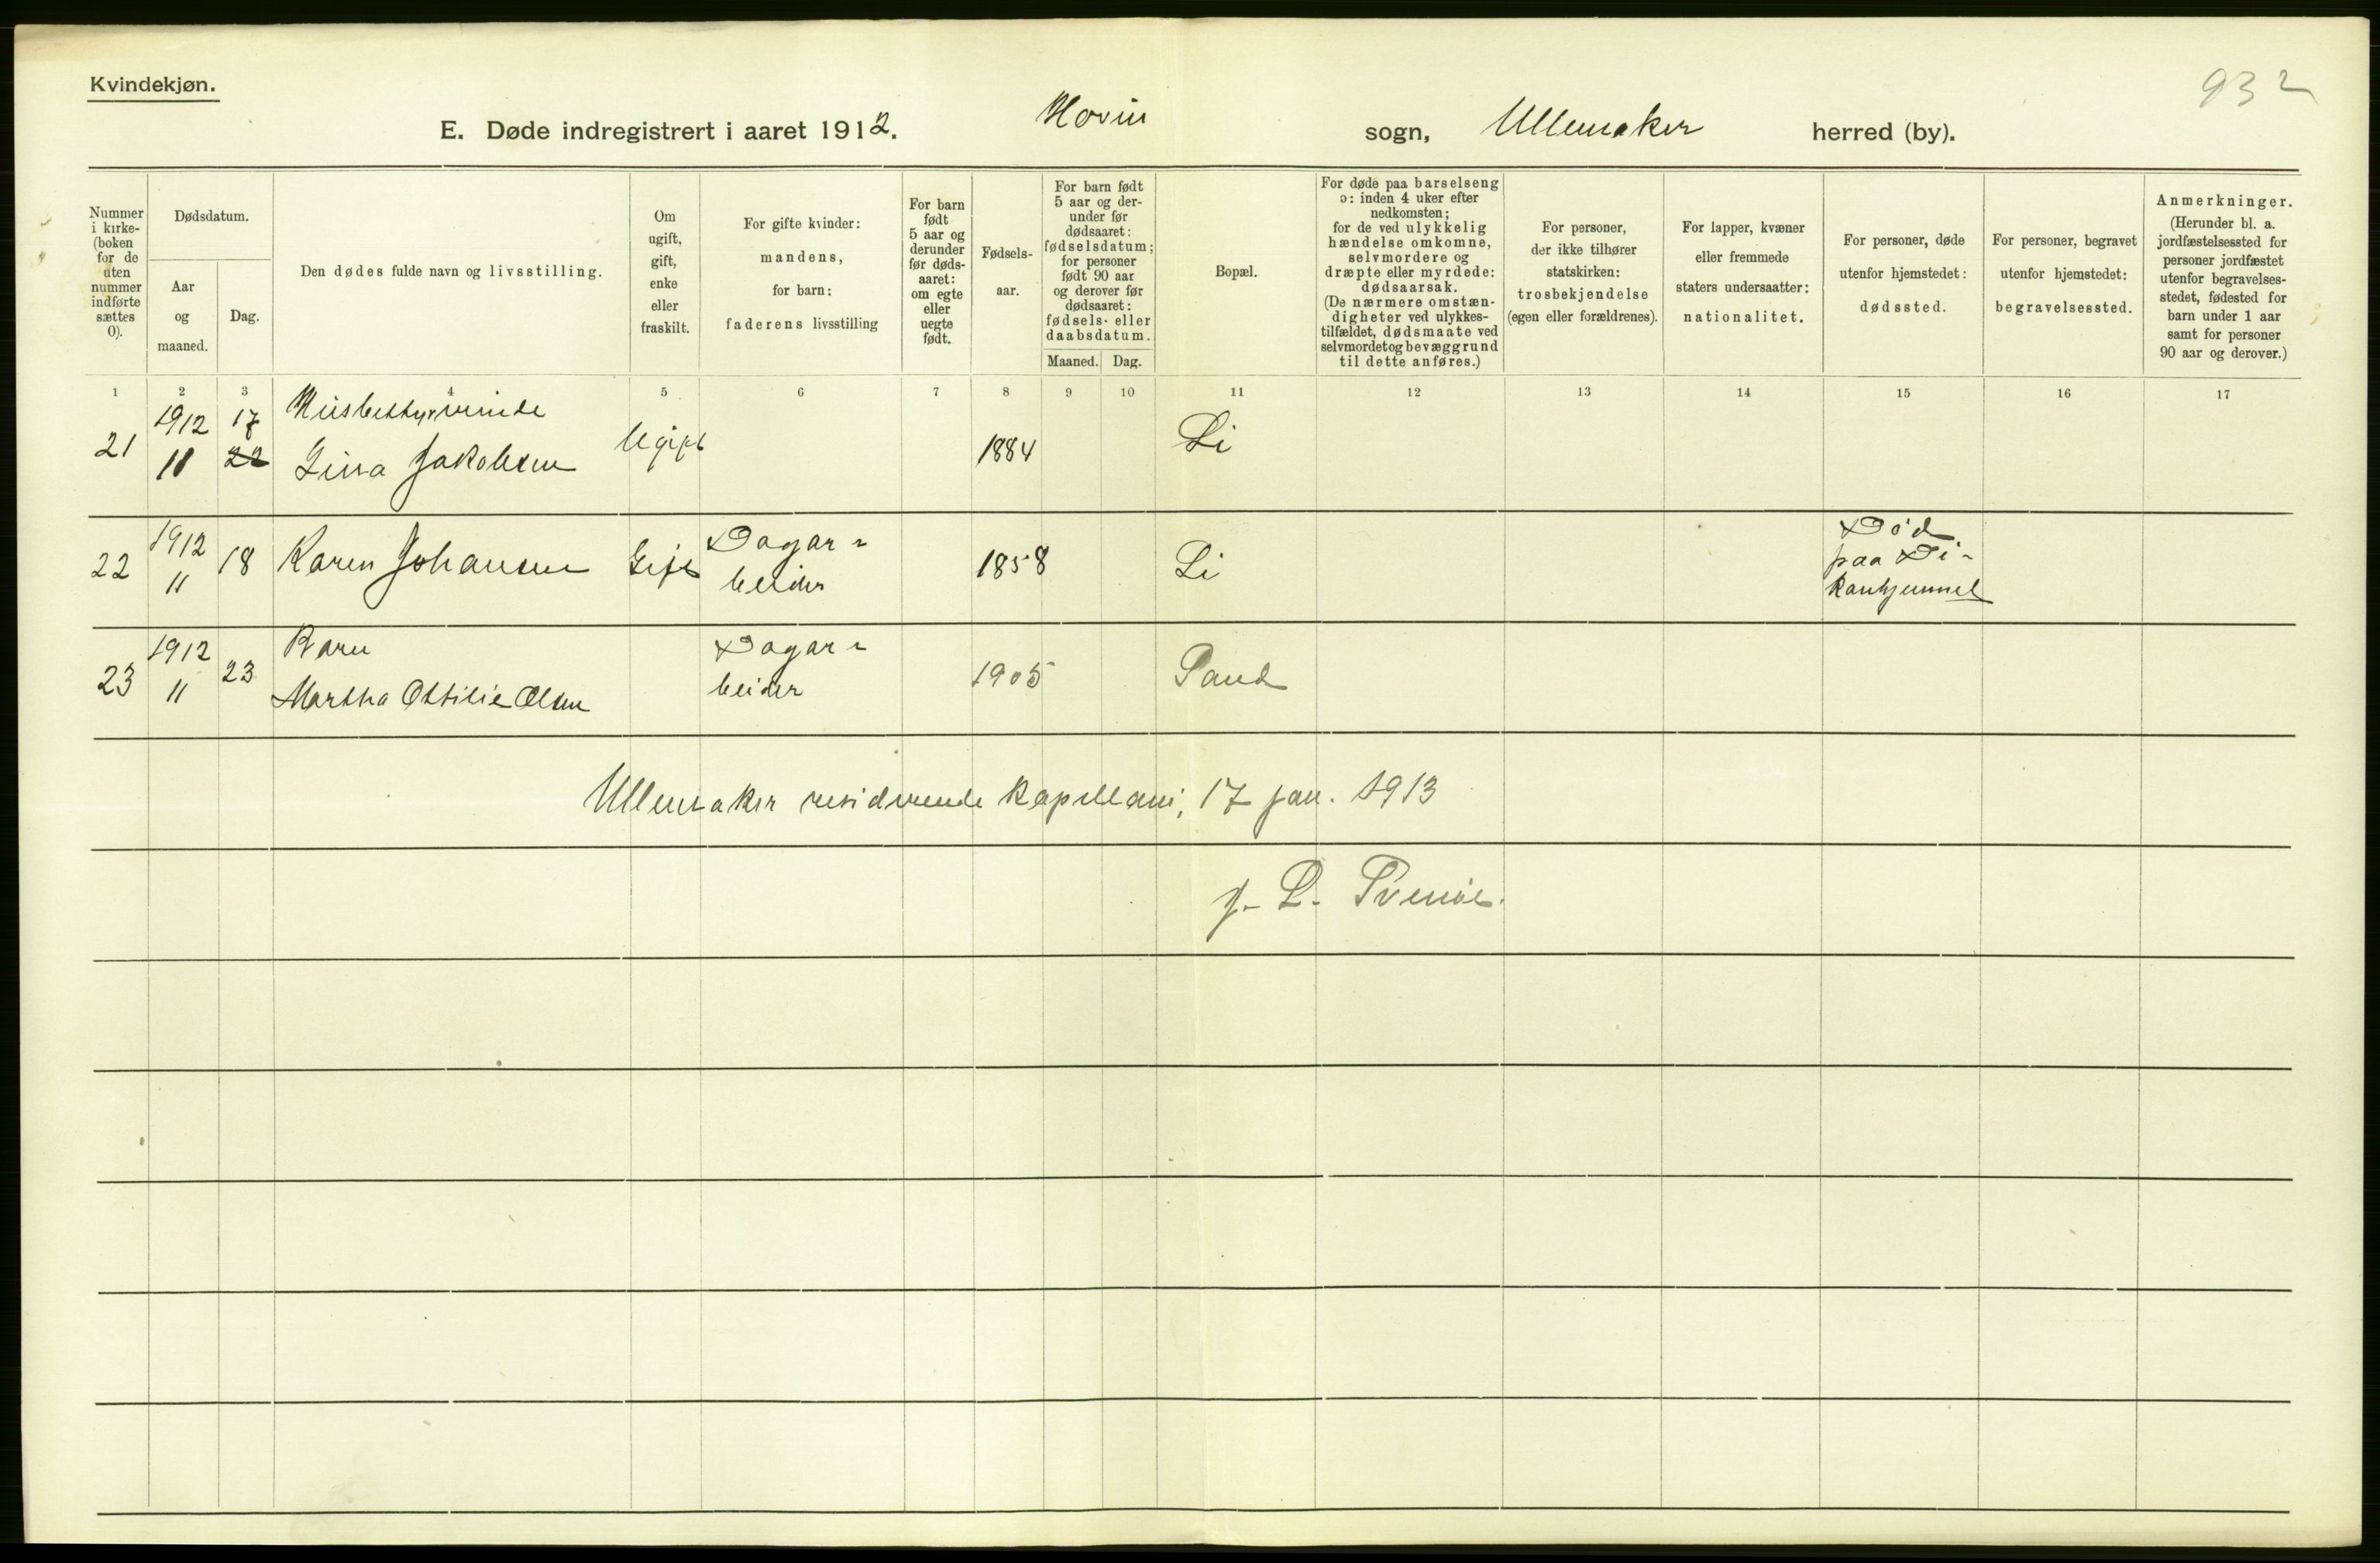 932
Kvindekjøn.
E. Døde indregistrert i aaret 1912. Hovin sogn, Ullensaker herred (by).
Nummer i kirke-(boken for de uten nummer indførte sættes 0).
Dødsdatum.
Aar og maaned.
Dag.
Den dødes fulde navn og livsstilling.
Om ugift, gift, enke eller fraskilt.
For gifte kvinder: mandens, for barn: faderens livsstilling
For barn født 5 aar og derunder før døds-aaret: om egte eller uegte født.
Fødsels-aar.
For barn født 5 aar og der-under før dødsaaret: fødselsdatum; for personer født 90 aar og derover før dødsaaret: fødsels- eller daabsdatum.
Maaned. Dag.
Bopæl.
For døde paa barselseng ɔ: inden 4 uker efter nedkomsten; for de ved ulykkelig hændelse omkomne, selvmordere og dræpte eller myrdede: dødsaarsak. (De nærmere omstæn-digheter ved ulykkes-tilfældet, dødsmaate ved selvmordet og bevæggrund til dette anføres.)
For personer, der ikke tilhører statskirken: trosbekjendelse (egen eller forældrenes).
For lapper, kvæner eller fremmede staters undersaatter: nationalitet.
For personer, døde utenfor hjemstedet: dødssted.
For personer, begravet utenfor hjemstedet: begravelsessted.
Anmerkninger. (Herunder bl. a. jordfæstelsessted for personer jordfæstet utenfor begravelses-stedet, fødested for barn under 1 aar samt for personer 90 aar og derover.)
1 2 3 4 5 6 7 8 9 10 11 12 13 14 15 16 17
21 1912 11 17 22 Husbestyrerinde Lina Jakobsen Ugift 1884 Li
22 1912 11 18 Karen Johansen Gift Dagar-beider 1858 Li Død paa Di-konhjemmet
23 1912 11 23 Barn Martha Ottilie Olsen Dagar-beider 1905 Sand
Ullensaker residerende kapellani, 17 jan. 1913